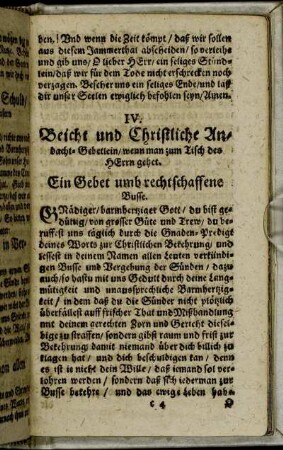 ben.! Vnd wenn die Zeit kömpt / daß wir sollen
aus diesem Jammerthal abscheiden / so verleihe
und gib uns / O lieber HErr / ein seliges Stünd-
lein / daß wir für dem Tode nicht erschrecken noch
verzagen. Bescher uns ein seliges Ende / und laß
dir unser Seelen ewiglich befohlen seyn / Amen.
IV.
Beicht und Christliche An-
dacht-Gebetlein, wenn man zum Tisch des
HErrn gehet.
Ein Gebet umb rechtschaffene
Busse.
GNädiger / barmhertziger Gott / du bist ge-
dültig / von grosser Güte und Trew / du be-
ruffest uns täglich durch die Gnaden-Predigt
deines Worts zur Christlichen Bekehrung / und
lessest in deinem Namen allen Leuten verkündi-
gen Busse und Vergebung der Sünden / dazu
auch / so hastu mit uns Gedult durch deine Lang-
mütigkeit und unaussprechliche Barmhertzig-
keit / in dem daß du die Sünder nicht plötzlich
überfällest auff frischer That und Mißhandlung
mit deinem gerechten Zorn und Gericht dieselbi-
ge zu straffen / sondern gibst raum und frist zur
Bekehrung / damit niemand über dich billich zu
klagen hat / und dich beschuldigen kan / denn
es ist je nicht dein Wille / daß jemand sol ver-
lohren werden / sondern daß sich jederman zur
Busse bekehre / und das ewige Leben habe
c 4